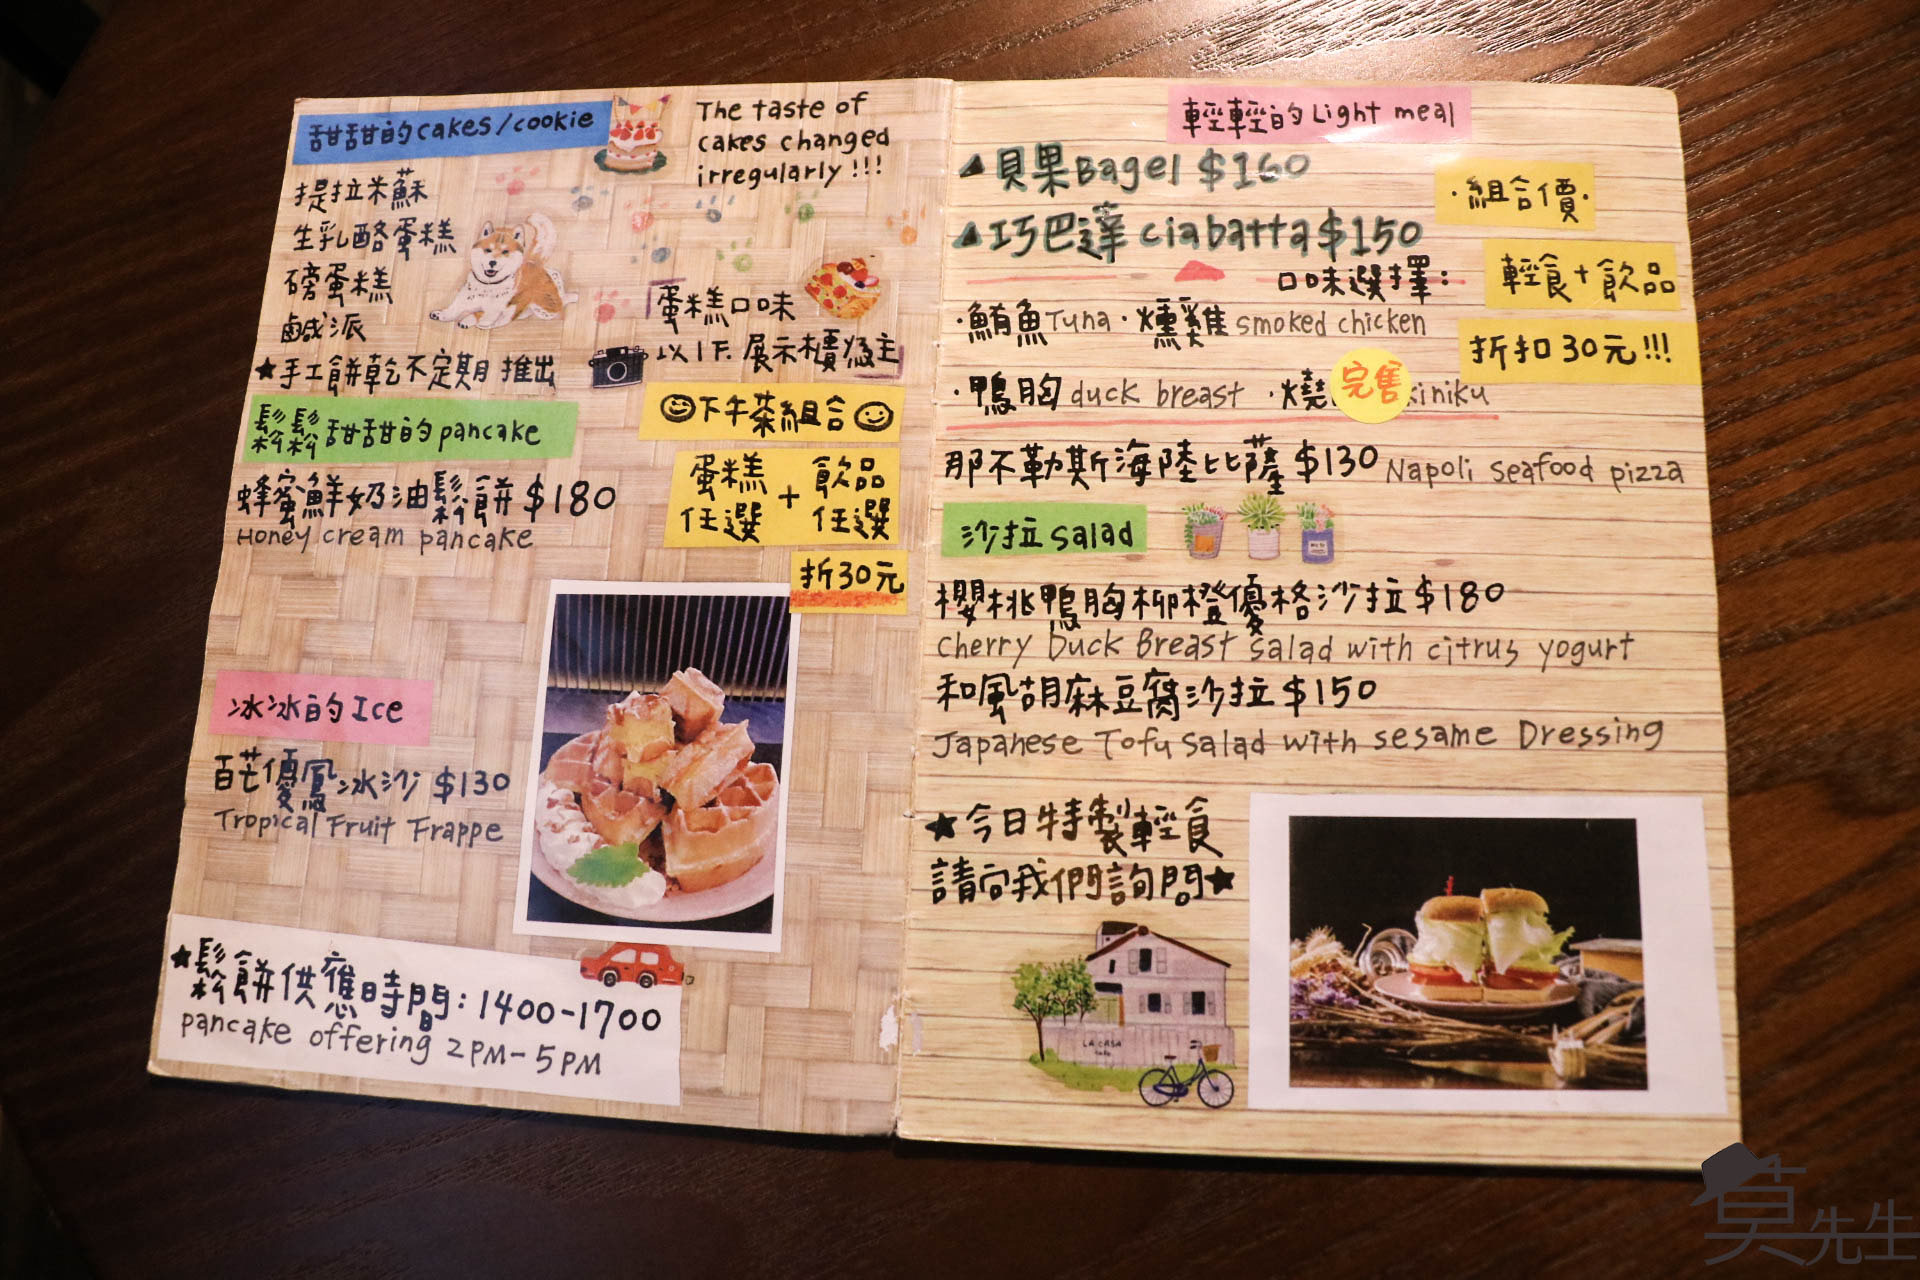 甜甜的cakes/cookie
The taste of
cakes changed
irregularly!!!
提拉米蘇
生乳酪蛋糕
磅蛋糕
鹹派
★手工餅乾不定期推出
蛋糕口味
以1F.展示櫃為主
鬆鬆甜甜的pancake
蜂蜜鮮奶油鬆餅$180
Honey cream pancake
下午茶組合
蛋糕任選+飲品任選
折30元
冰冰的Ice
百芒優鳳冰沙 $130
Tropical Fruit Frappe
★鬆餅供應時間:1400-1700
pancake offering 2PM-5PM
輕輕的Light meal
▲貝果Bagel $160
▲巧巴達 ciabatta$150
口味選擇:
·組合價·
輕食+飲品
折扣30元!!!
·鮪魚Tuna·燻雞smoked chicken
·鴨胸duck breast ·燒 kiniku
完售
那不勒斯海陸比薩$130 Napoli seafood pizza
沙拉salad
櫻桃鴨胸柳橙優格沙拉$180
Cherry Duck Breast salad with citrus yogurt
和風胡麻豆腐沙拉$150
Japanese Tofu salad with sesame Dressing
★今日特製輕食
請向我們詢問★
LA CASA
cafe
莫先生